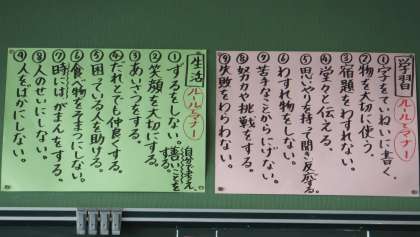 学習 ルール・マナー
①字をていねいに書く。
②物を大切に使う。
③宿題をわすれない。
④堂々と伝える。
⑤思いやりを持って聞き反応する。
⑥わすれ物をしない。
⑦苦手なことからにげない。
⑧努力や挑戦をする。
⑨失敗をわらわない。
生活 ルール・マナー
①ずるをしない。自分で考え善いことをする。
②笑顔を大切にする。
③あいさつをする。
④だれとでも仲良くする。
⑤困っている人を助ける。
⑥食べ物をそまつにしない。
⑦時には、がまんをする。
⑧人のせいにしない。
⑨人をばかにしない。